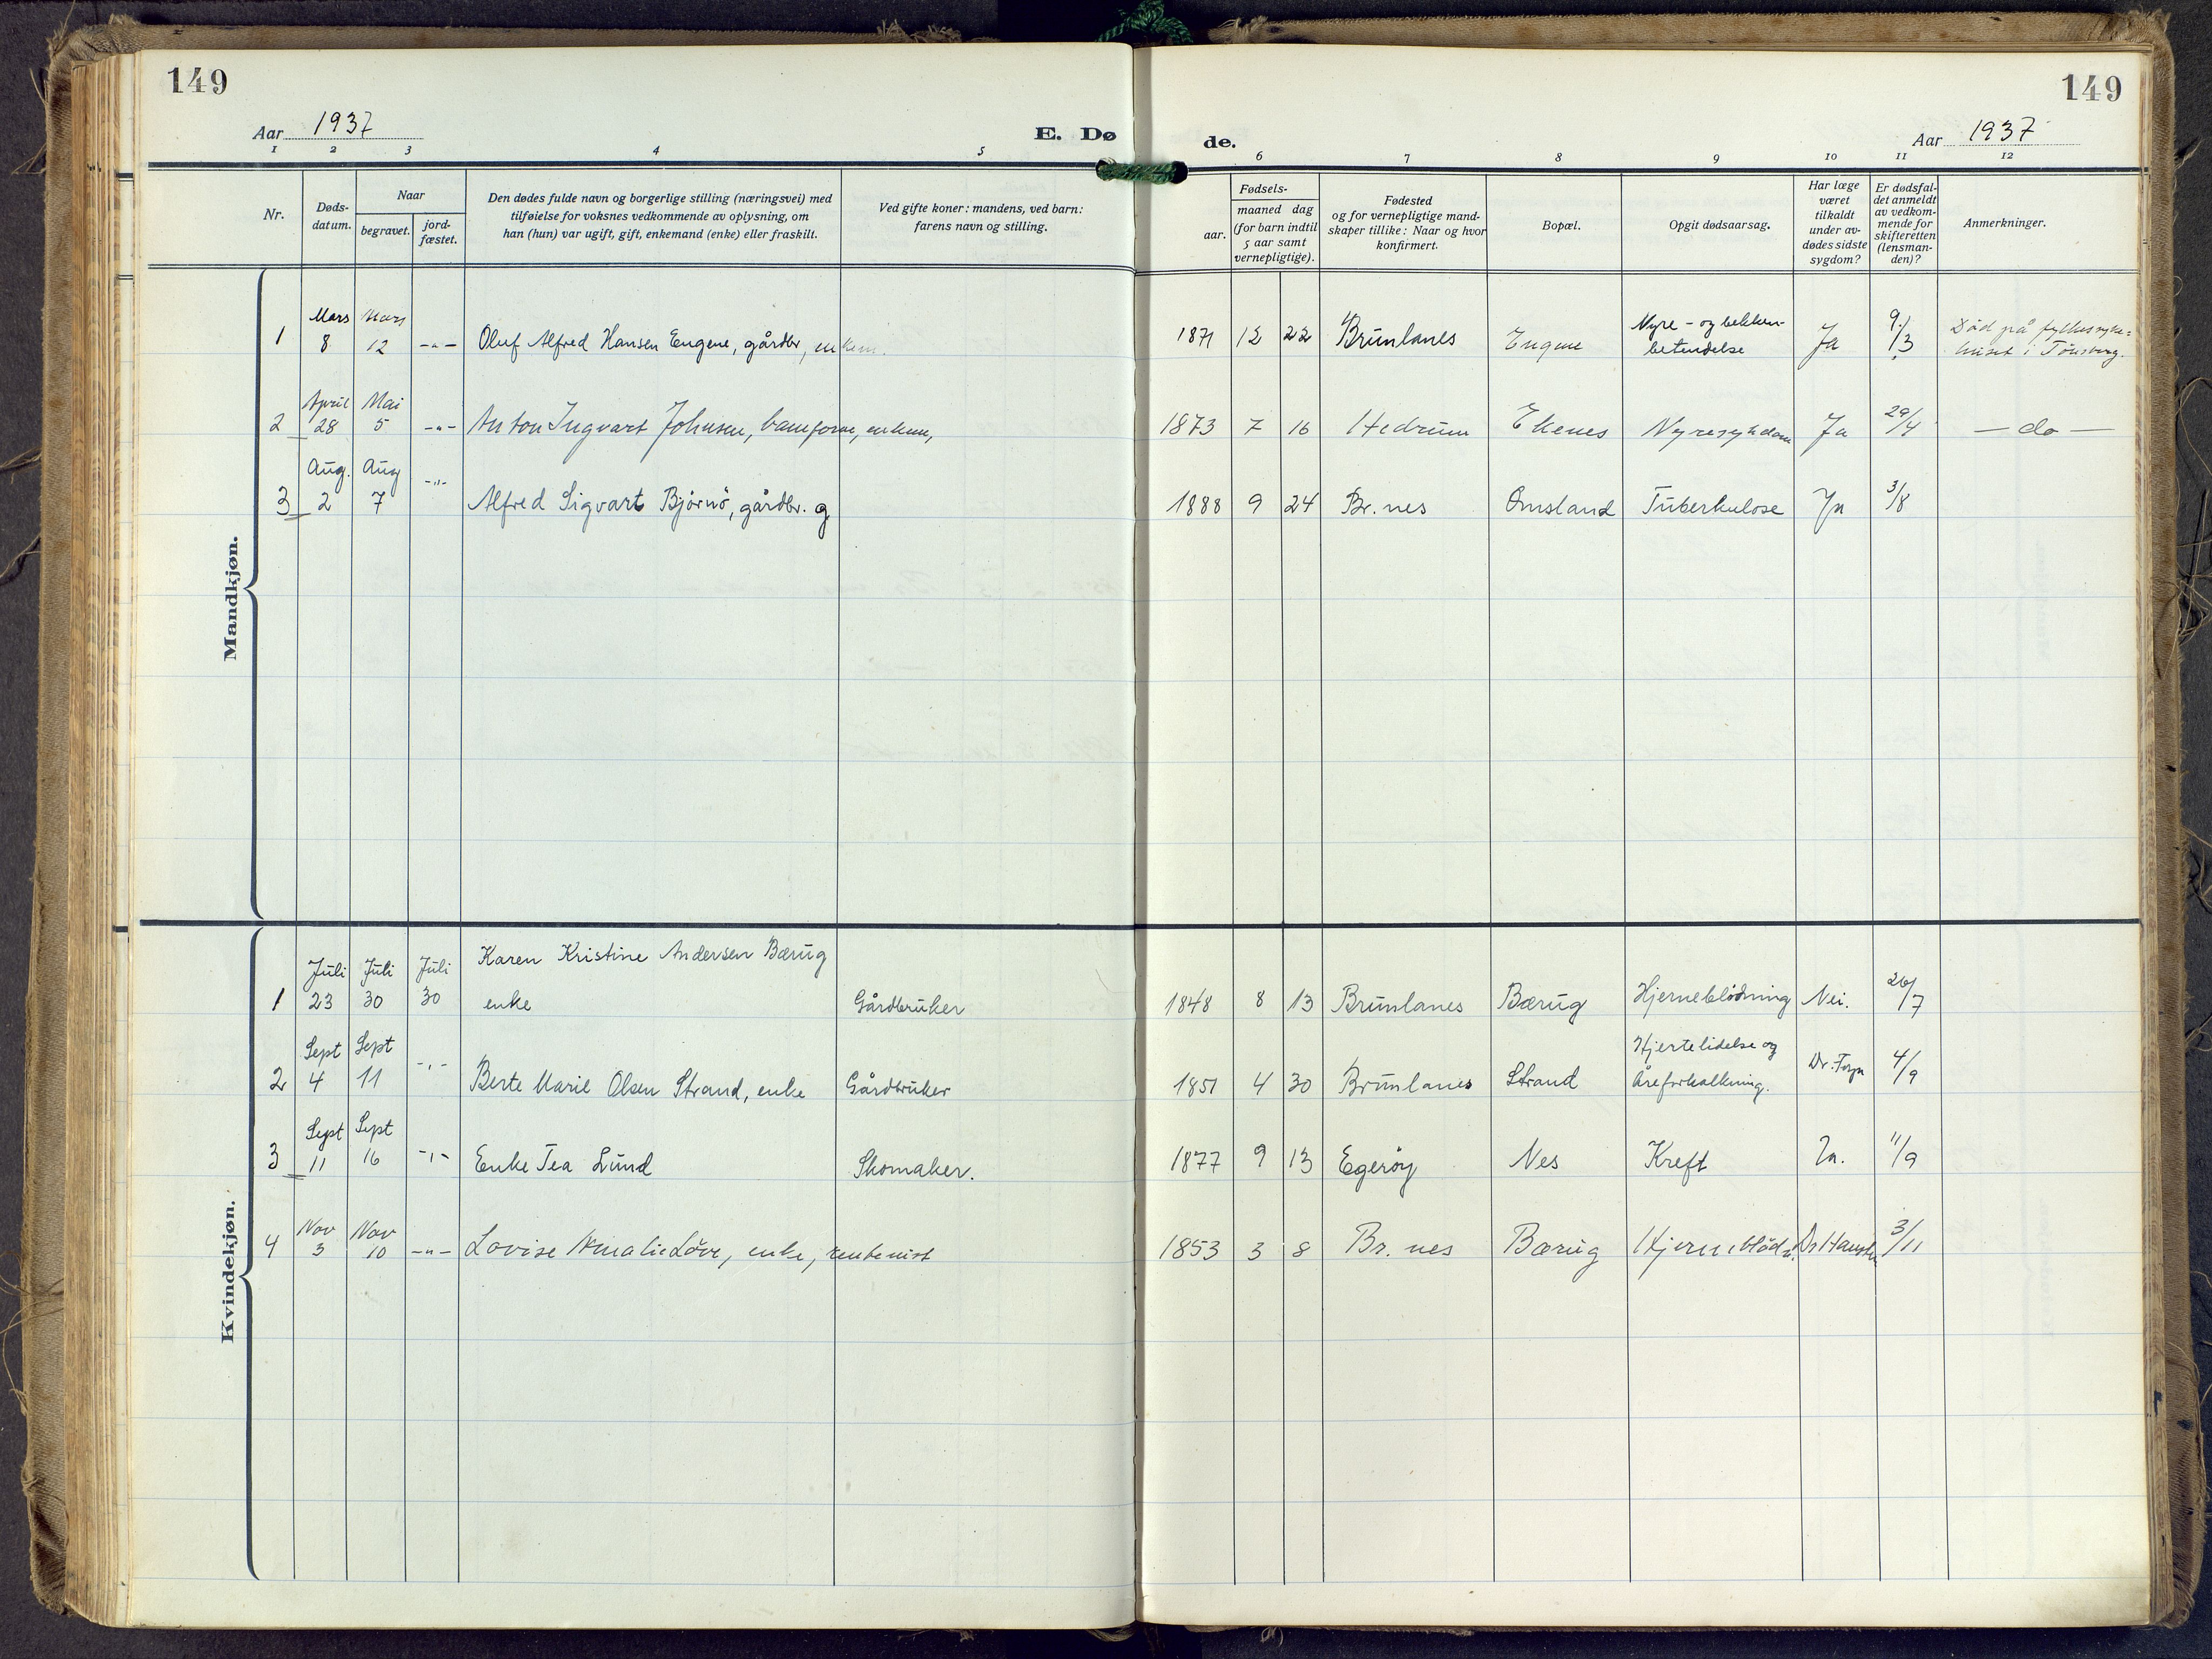 149
149
Aar 1937
E. Døde.
Aar 1937
1 2 3 4 5 6 7 8 9 10 11 12
Nr.
Døds-
datum.
Naar
begravet.
jord-
fæstet.
Den dødes fulde navn og borgerlige stilling (næringsvei) med
tilføielse for voksnes vedkommende av oplysning, om
han (hun) var ugift, gift, enkemand (enke) eller fraskilt.
Ved gifte koner: mandens, ved barn:
farens navn og stilling.
Fødsels-
aar.
maaned dag
(for barn indtil
5 aar samt
vernepligtige).
Fødested
og for vernepligtige mand-
skaper tillike: Naar og hvor
konfirmert.
Bopæl.
Opgit dødsaarsag.
Har læge
været
tilkaldt
under av-
dødes sidste
sygdom?
Er dødsfal-
det anmeldt
av vedkom-
mende for
skifteretten
(lensman-
den)?
Anmerkninger.
Mandkjøn.
Mars Mars Nyre- og bekken- 9. Död på fylkessyke=
1 8 12 -"- Oluf Alfred Hansen Eugene, gårdbr, enkem. 1871 12 22 Brunlanes Eugene betendelse Ja /3 huset i Tönsberg.
April Mai
2 28 5 -"- Anton Ingvart Johnsen, baneform, enkem, 1873 7 16 Hedrum Ekenes Nyresykdom Ja 29/4 — do —
Aug. Aug -"-
3 2 7 Alfred Sigvart Bjørnö, gårdbr. g 1888 9 24 Br.nes Omsland Tuberkulose Ja 3/8
Kvindekjøn.
Juli Juli Juli Karen Kristine Andersen Bærug
1 23 30 30 enke Gårdbruker 1848 8 13 Brunlanes Bærug Hjerneblödning Nei. 26/7
Sept Sept -"- Hjertelidelse og
2 4 11 Berte Marie Olsen Strand, enke Gårdbruker 1851 4 30 Brunlanes Strand åreforkalkning. Dr. 4/9
Sept Sept
3 11 16 -"- Enke Tea Lund Skomaker. 1877 9 13 Egeröy Nes Kreft Ja. 11/9
Nov Nov
4 3 10 -"- Lovise Amalie Löve, enke, rentenist 1853 3 8 Br. nes Bærug Hjerneblödn. Dr 3/11